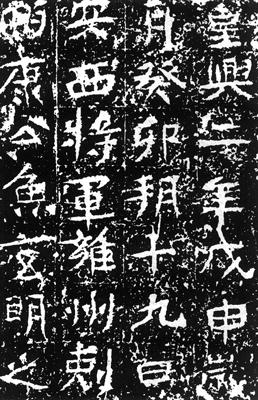 皇興二年戊申歲
月癸卯朔十九日
安西將軍雍州刺
康公魚玄明之